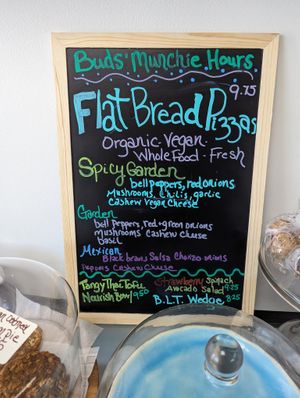 Buds' Munchie Hours
9.75
Flat Bread Pizzas
Organic-Vegan-
Whole Food-Fresh
Spicy Garden
bell peppers, red onions
Mushrooms, Chilis, garlic
Cashew Vegan Cheese
Garden
bell peppers, red+green onions
mushrooms Cashew Cheese
basil
Mexican
Black beans Salsa Chorizo onions
peppers Cashew Cheese
Tangy Thai Tofu
Nourish Bowl 9.50
Strawberry Spinach
Avocado Salad 9.25
B.L.T. Wedge 8.25